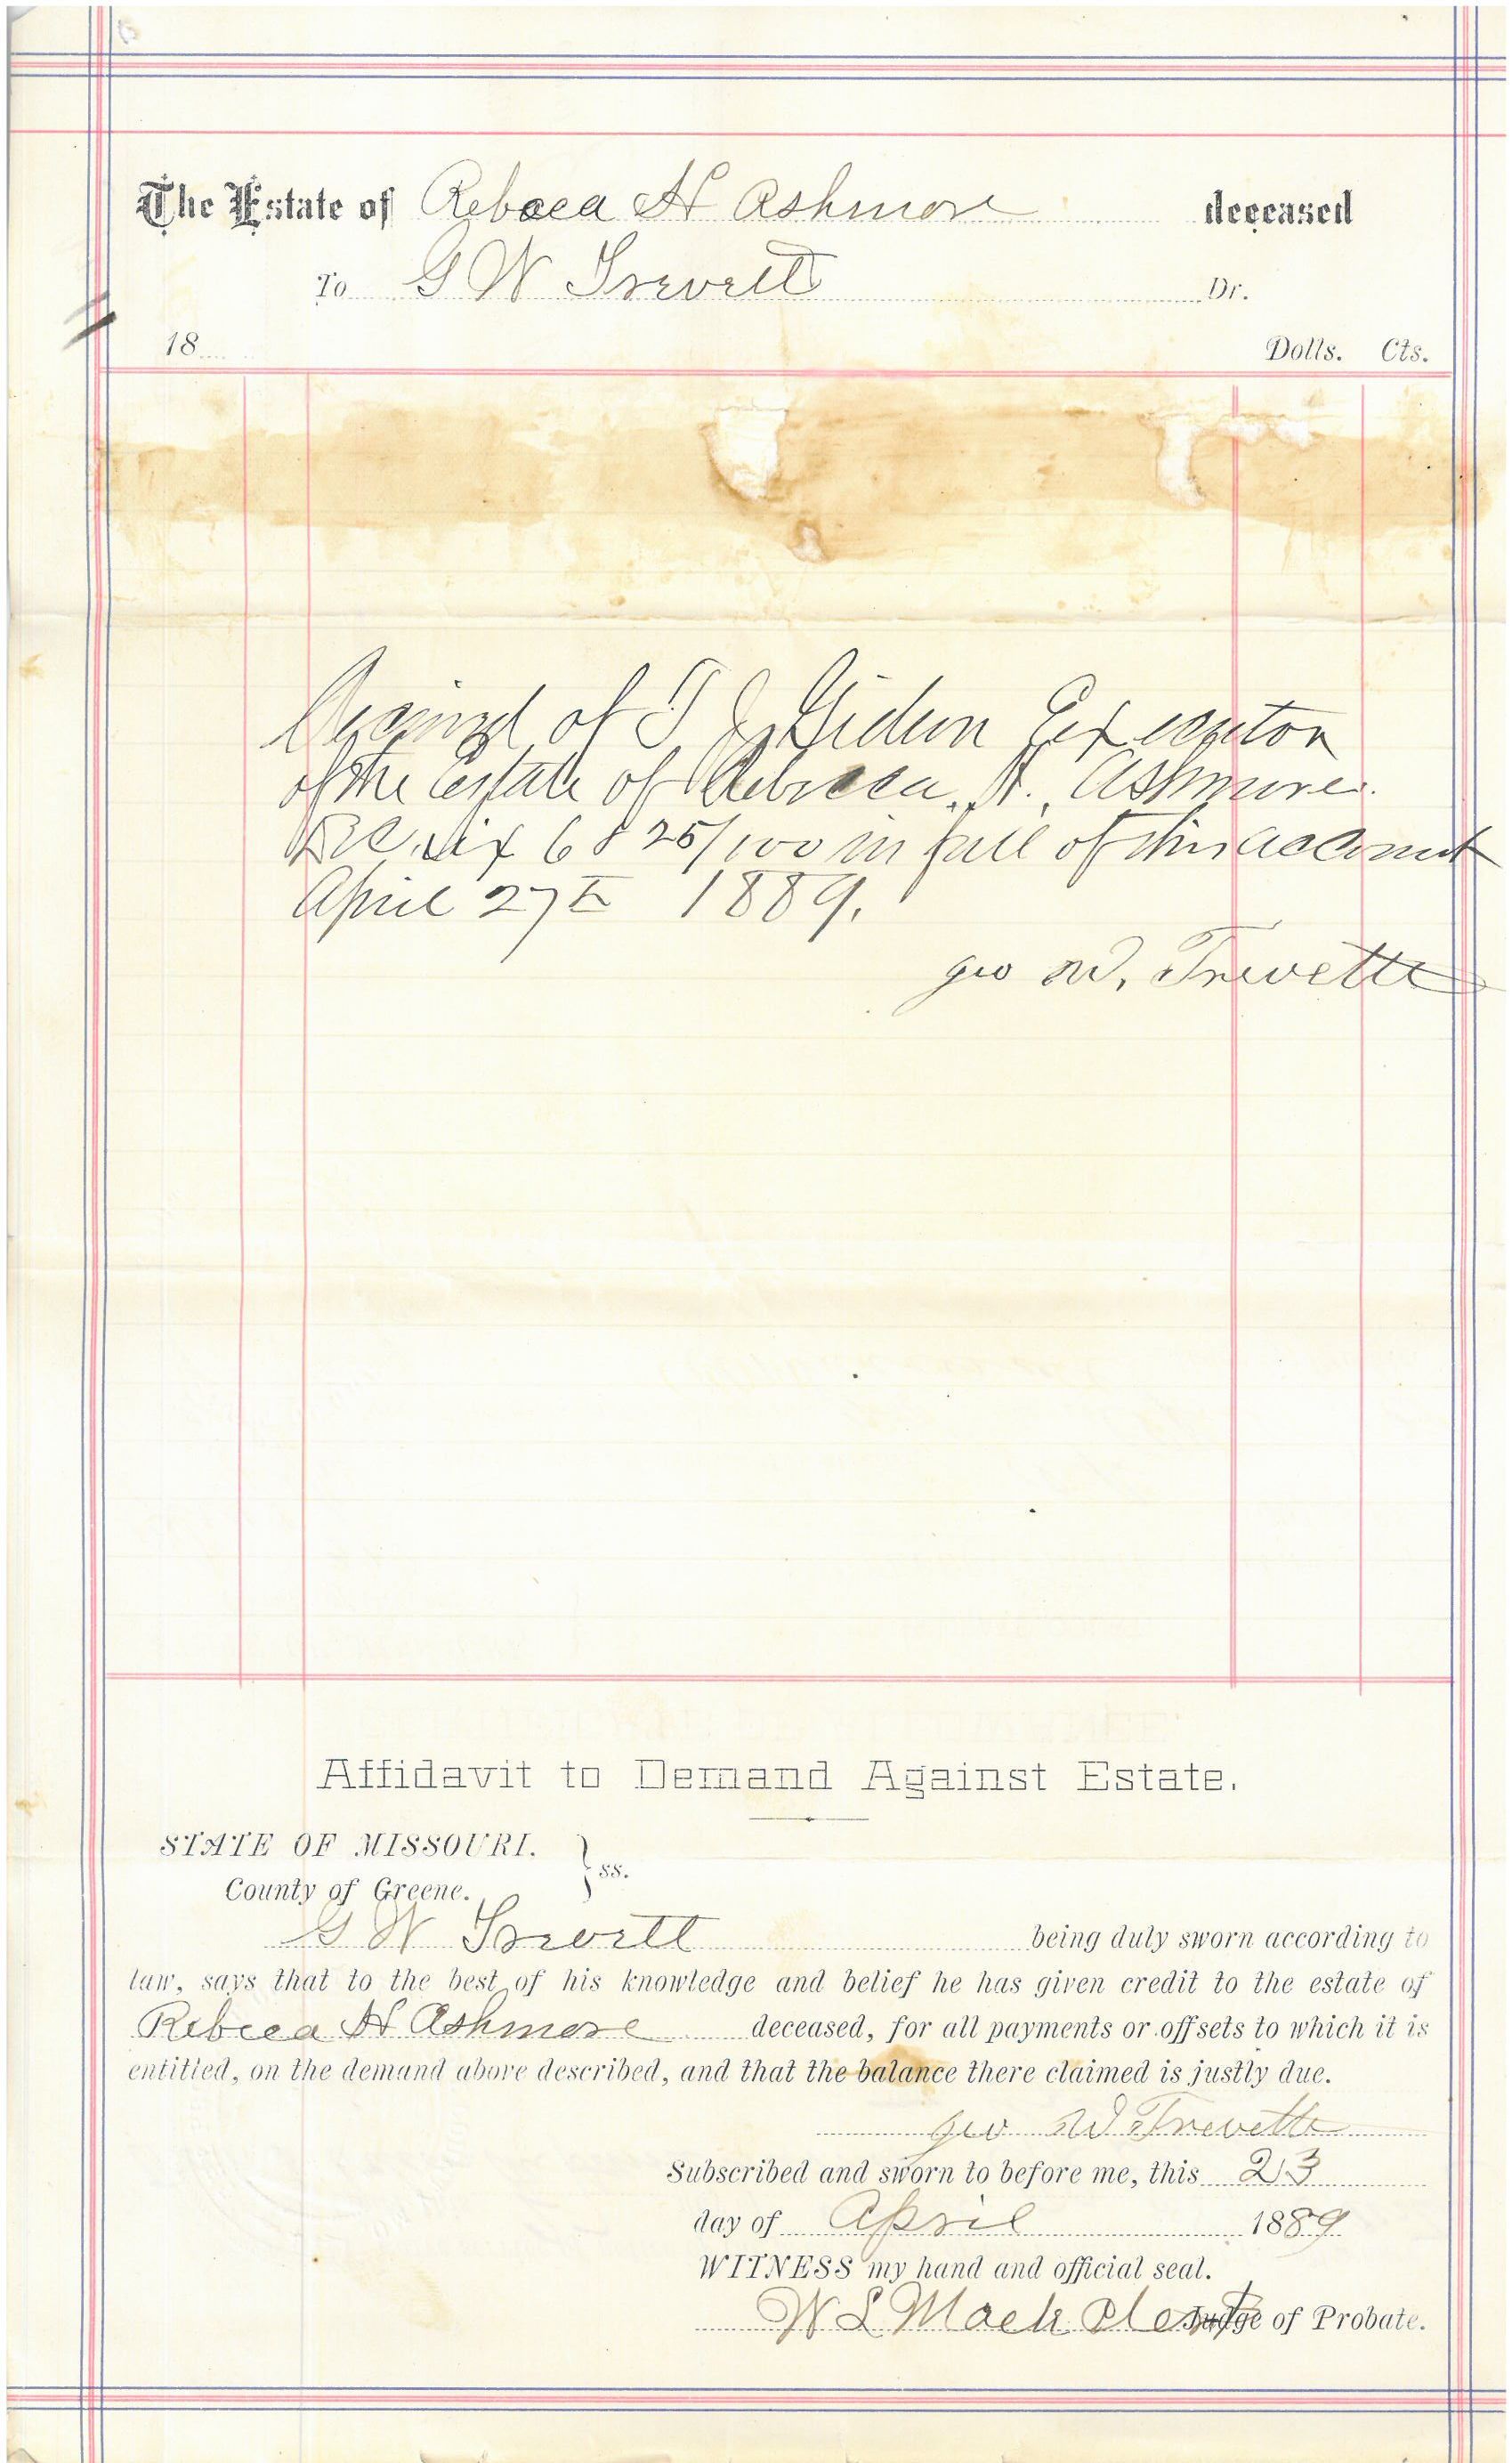 The Estate of Rebecca H Ashmore deceased
To G W Trevett Dr.
18 Dolls. Cts.
Received of T J Gideon Executor
of the Estate of Rebecca H. Ashmore.
Six 25/100 in full of this account
April 27th 1889.
Geo W. Trevette
Affidavit to Demand Against Estate.
STATE OF MISSOURI. } ss.
County of Greene.
G W Trevett being duly sworn according to
law, says that to the best of his knowledge and belief he has given credit to the estate of
Rebcca H Ashmore deceased, for all payments or offsets to which it is
entitled, on the demand above described, and that the balance there claimed is justly due.
Geo W Trevette
Subscribed and sworn to before me, this 23
day of April 1889
WITNESS my hand and official seal.
W L Mack Clerk Judge of Probate.